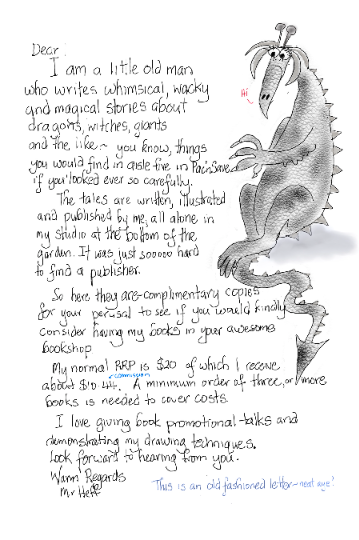 Dear :
I am a little old man
who writes whimsical, wacky
and magical stories about
dragons, witches, giants
and the like ~ you know, things
you would find in aisle five in Pac'nSave
if you looked ever so carefully.
The tales are written, illustrated
and published by me, all alone in
my studio at the bottom of the
garden. It was just sooooo hard
to find a publisher.
So here they are-complimentary copies
for your perusal to see if you would kindly
consider having my books in your awesome
bookshop
My normal RRP is $20 of which I receive
commission
about $10.44. A minimum order of three, or more
books is needed to cover costs.
I love giving book promotional-talks and
demonstrating my drawing techniques.
Look forward to hearing from you.
Warm Regards
Mr
This is an old fashioned letter~ neat aye?
Hi